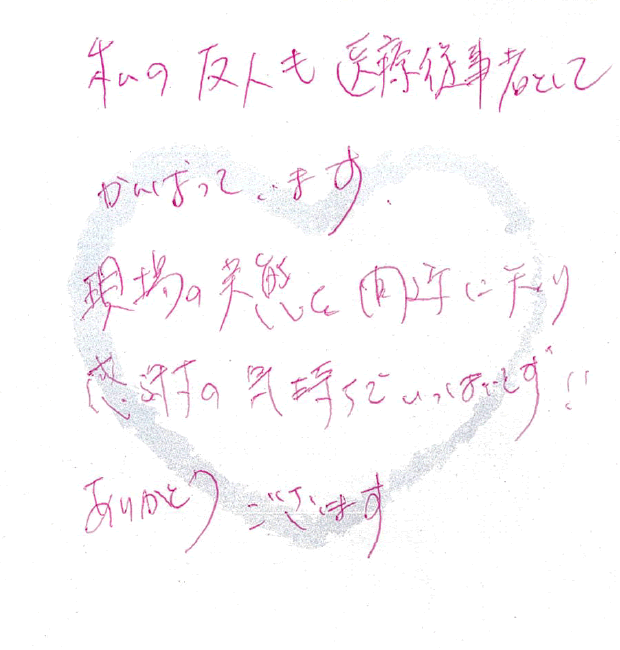 私の友人も医療従事者として
がんばっています.
現場の実態を間近に知り
感謝の気持ちでいっぱいです!!
ありがとうございます